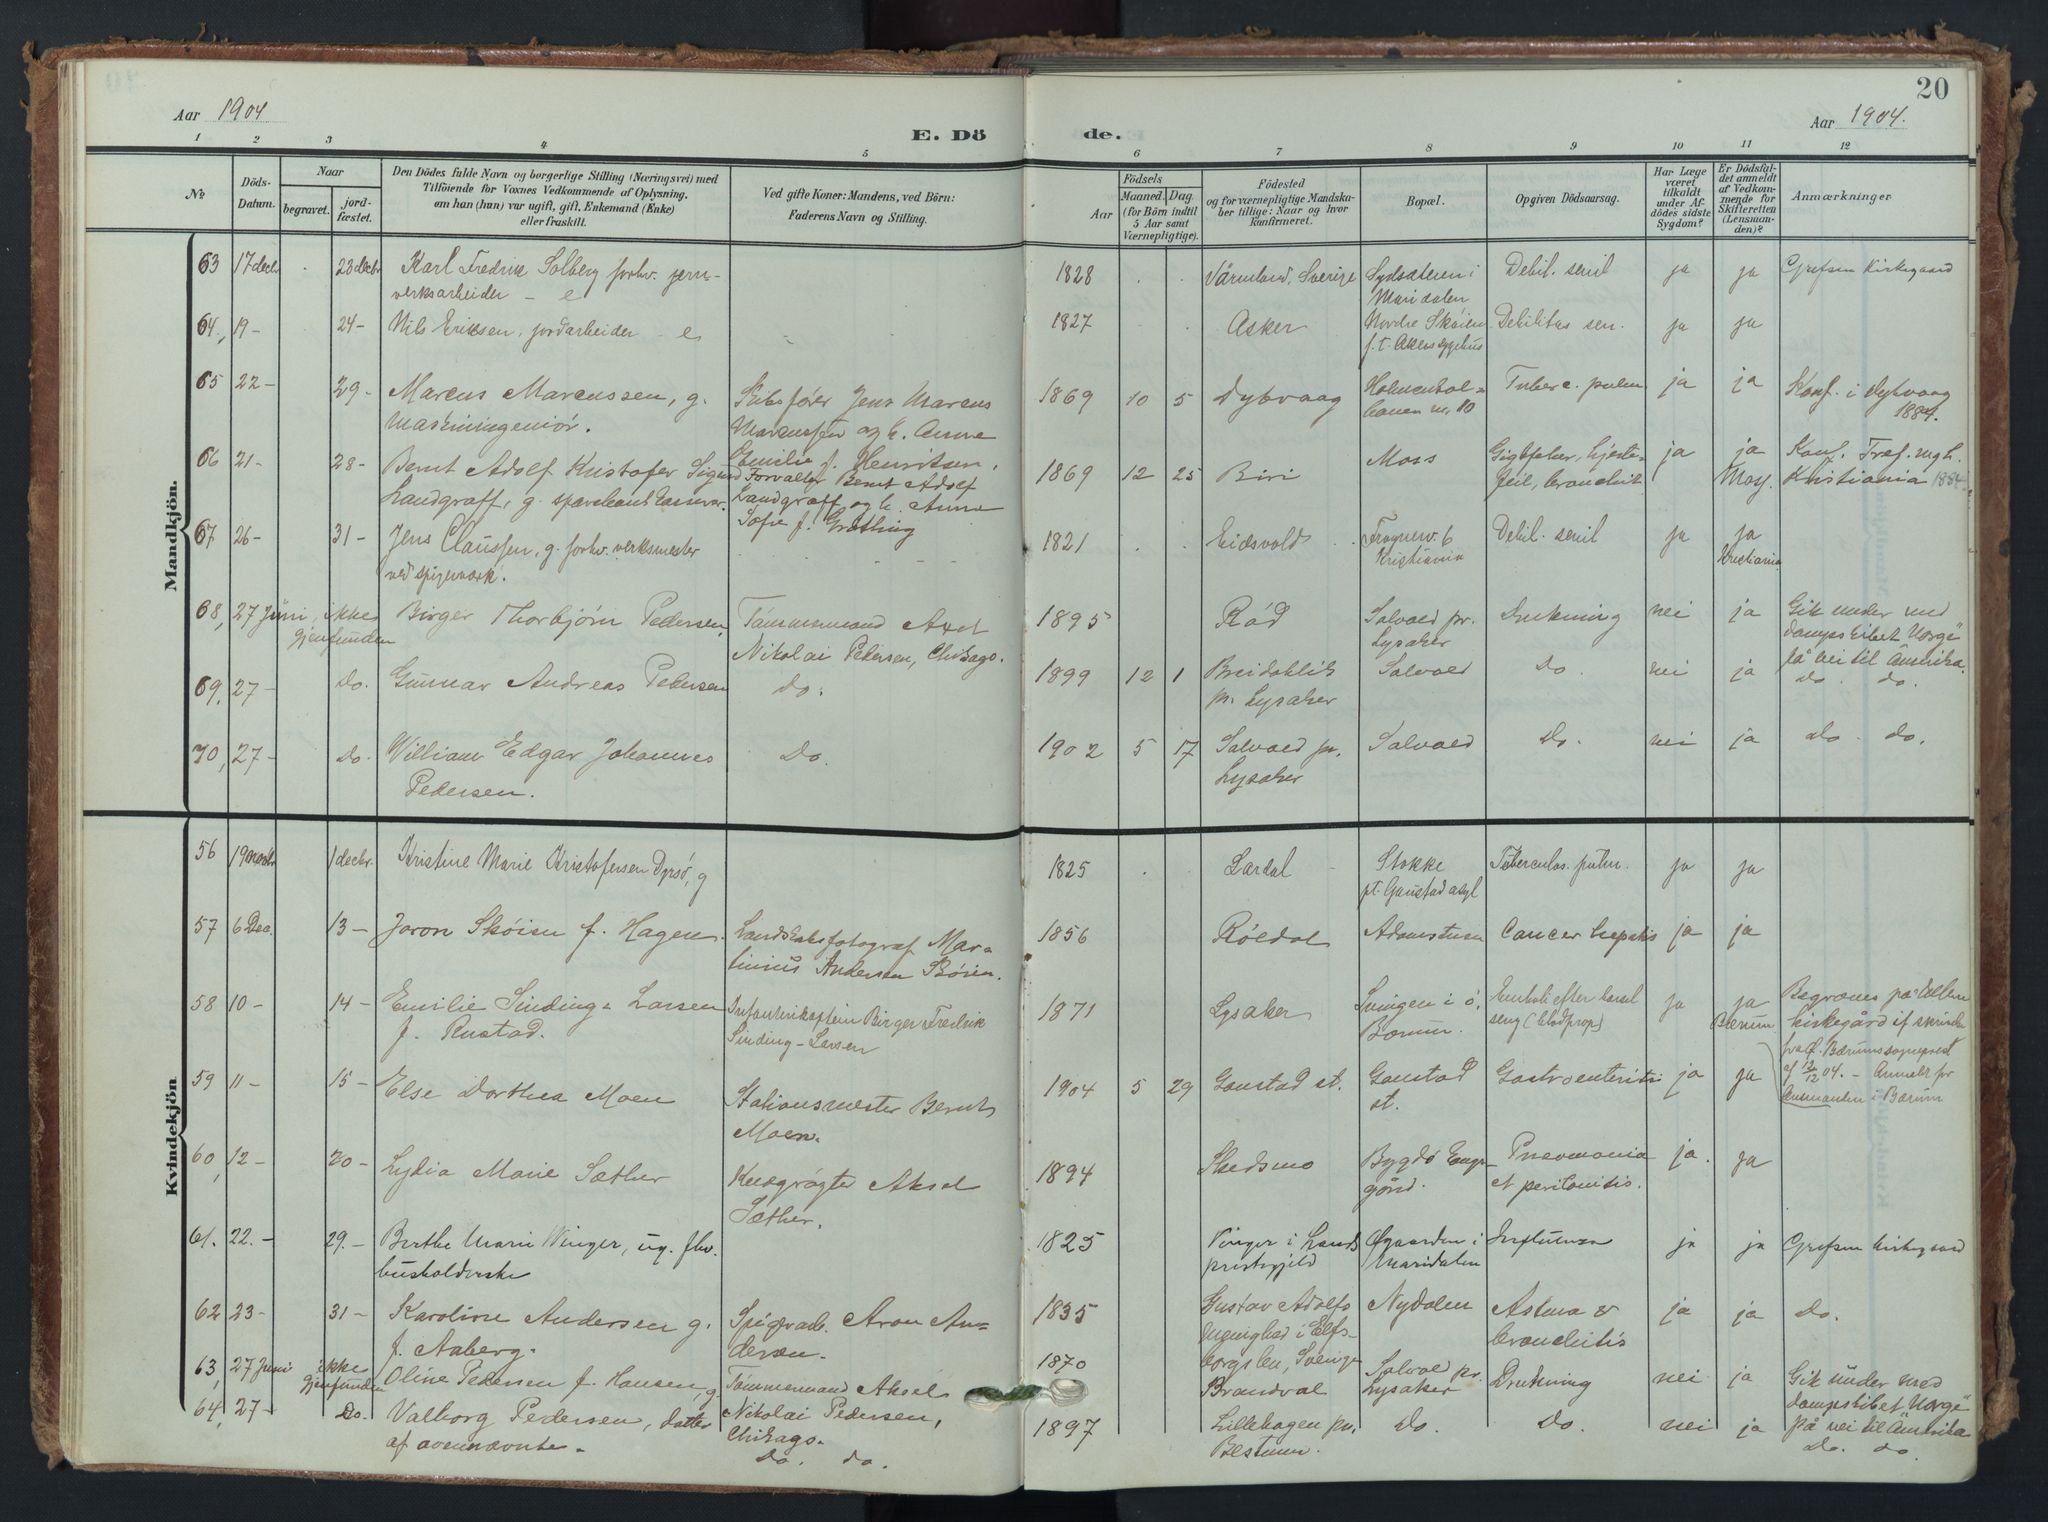 20
Aar 1904
Aar 1904.
E. Dö
de.
1 2 3 4 5 6 7 8 9 10 11 12
No
Döds-
Datum.
Naar
begravet.
jord-
fæstet.
Den Dödes fulde Navn og borgerlige Stilling (Næringsvei) med
Tilföiende for Voxnes Vedkommende af Oplysning,
om han (hun) var ugift, gift, Enkemand (Enke)
eller fraskilt.
Ved gifte Koner: Mandens, ved Börn:
Faderens Navn og Stilling.
Födsels
Aar
Maaned. Dag.
(for Börn indtil
5 Aar samt
Værnepligtige).
Födested
og for værnepligtige Mandska-
ber tillige: Naar og hvor
konfirmeret.
Bopæl.
Opgiven Dödsaarsag.
Har Læge
været
tilkaldt
under Af-
dödes sidste
Sygdom?
Er Dödsfal-
det anmeldt
af Vedkom-
mende for
Skifteretten
(Lensman-
den)?
Anmærkninger
Mandkjön.
63 17 decbr. 23 decbr Karl Fredrik Solberg forhv. jern-
verksarbeider - e
1828 Värmland, Sverige Sydsæteren i
Maridalen
Debil. senil ja ja Grefsen Kirkegaard
64, 19- 24- Nils Eriksen, jordarbeider - e
1827 Asker Nordre Skøien
f. t. Akers sygehus
Debilitas sen. ja ja
65 22- 29- Marcus Marcussen, g.
Maskiningeniør.
Skibsfører Jens Marcus
Marcussen og h. Anne
Emilie f. Henriksen.
1869 10 5 Dybvaag Holmenkol-
banen nr. 10
Tuberc. pulm ja ja Konf. i Dybvaag
1884.
66 21- 28- Bernt Adolf Kristofer Sigurd
Landgraff, g. sparebankkasserer.
Forvalter Bernt Adolf
Landgraff og h. Anne
Sofie f. Grøthing
1869 12 25 Biri Moss Gigtfeber, hjerte-
feil, bronchit ja ja
Moss.
Konf. Tref. mgh.
Kristiania 1884
67 26- 31- Jens Claussen, g. forhv. verksmester
ved spigerværk.
1821 Eidsvold Frognerv. 6
Kristiania
Debil. senil ja ja
Kristiania
68, 27 Juni, ikke
gjenfunden
Birger Thorbjørn Pedersen,
Tømmermand Axel
Nikolai Pedersen, Chikago.
1895 Råd Solvold pr.
Lysaker
Drukning nei ja Gik under med
dampskibet "Norge"
på vei til Amerika.
69, 27- Do. Gunnar Andreas Pedersen Do.
1899 12 1 Breidablik
pr. Lysaker
Solvold Do. nei ja do. do.
70, 27- Do. William Edgar Johannes
Pedersen.
Do.
1902 5 17 Solvold pr.
Lysaker
Solvold Do. nei ja do. do.
Kvindekjön
56 19 novbr. 1 decbr. Kristine Marie Kristofersen Dyrsø, g
1825 Lardal Stokke
pt. Gaustad asyl
Tuberculos. pulm. ja ja
57 6 Dec. 13- Joron Skøien f. Hagen.
Landskabsfotograf Mar-
tinius Andersen Skøien.
1856 Røldal Adamstuen Cancer hepatis ja ja
58 10- 14- Emilie Sinding-Larsen
f. Rustad.
Infanterikaptein Birger Fredrik
Sinding-Larsen
1871 Lysaker Svingen i ø.
Bærum.
Emboli efter barsel
seng (blodprop) ja ja
Bærum
Begraves på Ullern
kirkegård if. skrivelse
fra Ø. Bærums sogneprest
af 12/12 04. - Anmeldt for
lensmanden i Bærum
59 11- 15- Else Dorthea Moen
Stationsmester Bernt
Moen.
1904 5 29 Gaustad st. Gaustad
st.
Gastroenteritis ja ja
60, 12- 20- Lydia Marie Sæther
Kusgrøgter Aksel
Sæther.
1894 Skedsmo Bygdø Konge-
gård.
Pneumonia
et peritonitis. ja. ja
61. 22.- 29.- Berthe Marie Winger, ug. fhv.
husholderske
1825 Vinger i Lands
prestegjeld
Øgaarden i
Maridalen
Influensa ja ja Grefsen Kirkegaard
62 23- 31- Karoline Andersen g.
f. Aaberg.
Spigerarb. Aron An-
dersen.
1835 Gustav Adolfs
menighed i Elfs-
borgs len, Sverige
Nydalen Astma &
bronchitis ja ja Do.
63, 27 Juni ikke
gjenfunden
Oline Pedersen f. Hansen, g.
Tømmermand Aksel
Nikolai Pedersen,
Chikago.
1870 Brandval Solvold pr.
Lysaker
Drukning nei ja Gik under med
dampskibet "Norge"
på vei til Amerika
64, 27- Do. Valborg Pedersen, datter
af ovennævnte.
Do. do.
1897 Lillehagen pr.
Bestum.
Do. Do. nei ja Do. do